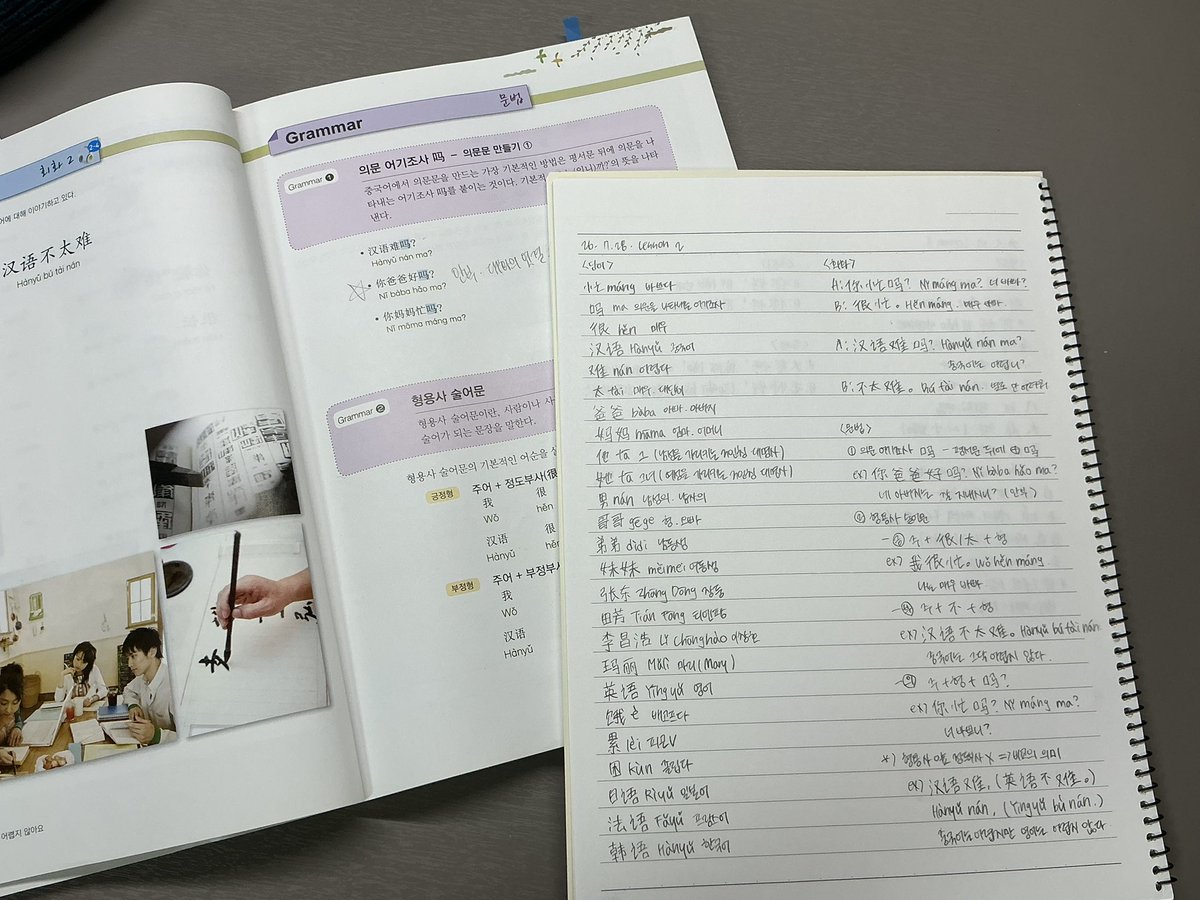 회화 2
2-4
어에 대해 이야기하고 있다.
汉语不太难
Hànyǔ bú tài nán
어렵지 않아요
Grammar
문법
Grammar 1
의문 어기조사 吗 - 의문문 만들기 ①
중국어에서 의문문을 만드는 가장 기본적인 방법은 평서문 뒤에 의문을 나
타내는 어기조사 吗를 붙이는 것이다. 기본적
까?'의 뜻을 나타
낸다.
• 汉语难吗?
Hànyǔ nán ma?
• 你爸爸好吗?
Nǐ bàba hǎo ma?
• 你妈妈忙吗?
Nǐ māma máng ma?
Grammar 2
형용사 술어문
형용사 술어문이란, 사람이나 사
술어가 되는 문장을 말한다.
형용사 술어문의 기본적인 어순을 살
긍정형
주어 + 정도부사(很
我 很
Wǒ hěn
汉语 很
Hànyǔ hěn
부정형
주어 + 부정부사
我
Wǒ
汉语
Hànyǔ
26. 7. 28. Lesson 2
<단어>
忙 máng 바쁘다
吗 ma 의문을 나타내는 어기조사
很 hěn 매우
汉语 Hànyǔ 중국어
难 nán 어렵다
太 tài 매우. 대단히
爸爸 bàba 아빠. 아버지
妈妈 māma 엄마. 어머니
他 tā 그 (남자를 가리키는 3인칭 대명사)
她 tā 그녀 (여자를 가리키는 3인칭 대명사)
男 nán 남성의. 남자의
哥哥 gēge 형. 오빠
弟弟 dìdi 남동생
妹妹 mèimei 여동생
张东 Zhāng Dōng 장동
田芳 Tián Fāng 티앤팡
李昌浩 Lǐ Chānghào 이창호
玛丽 Mǎlì 마리 (Mary)
英语 Yīngyǔ 영어
饿 è 배고프다
累 lèi 피곤
困 kùn 졸립다
日语 Rìyǔ 일본어
法语 Fǎyǔ 프랑스어
韩语 Hányǔ 한국어
<회화>
A: 你忙吗? Nǐ máng ma? 너 바빠?
B: 很忙。Hěn máng. 매우 바빠.
A: 汉语难吗? Hànyǔ nán ma?
중국어는 어렵니?
B: 不太难。Bú tài nán. 별로 안 어려워
<문법>
① 의문 어기조사 吗 - 평서문 뒤에 吗
ex) 你爸爸好吗? Nǐ bàba hǎo ma?
네 아버지는 잘 지내시니? (안부)
② 형용사 술어문
- 긍 주 + 很/太 + 형
ex) 我很忙。Wǒ hěn máng
나는 매우 바빠
- 부 주 + 不 + 형
ex) 汉语不太难。Hànyǔ bú tài nán
중국어는 그다지 어렵지 않다.
- 의 주 + 형 + 吗?
ex) 你忙吗? Nǐ máng ma?
너 바쁘니?
*) 형용사 앞 정도부사 X => 비교의 의미
ex) 汉语难, (英语不难。)
Hànyǔ nán, (Yīngyǔ bù nán.)
중국어는 어렵지만 영어는 어렵지 않다.